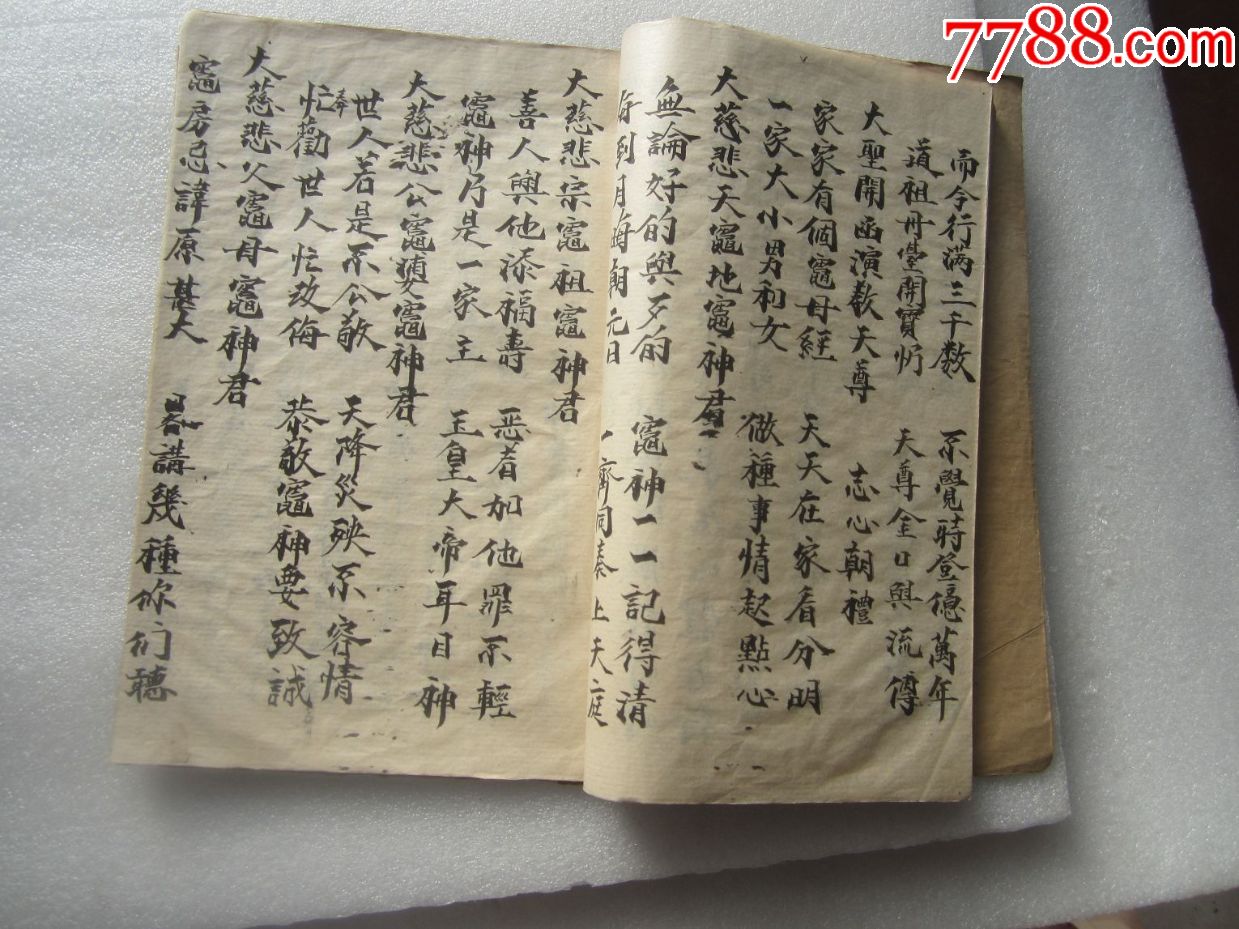 7788.com
而今行满三千数 不覺時登億萬年
道祖丹臺開寶忻 天尊金口與流傳
大聖開函演教天尊 志心朝禮
家家有個竈母經 天天在家看分明
一家大小男和女 做種事情起點心
大慈悲天竈地竈神君
無論好的與歹的 竈神一一記得清
每到月晦朝元日 一齊同奏上天庭
大慈悲宗竈祖竈神君
善人與他添福壽 恶者加他罪不輕
竈神乃是一家主 玉皇大帝耳目神
大慈悲公竈婆竈神君
世人若是不公敬 天降災殃不容情
忙奉勸世人忙改悔 恭敬竈神要致誠
大慈悲父竈母竈神君
竈房忌諱原甚大 畧講幾種你们聽